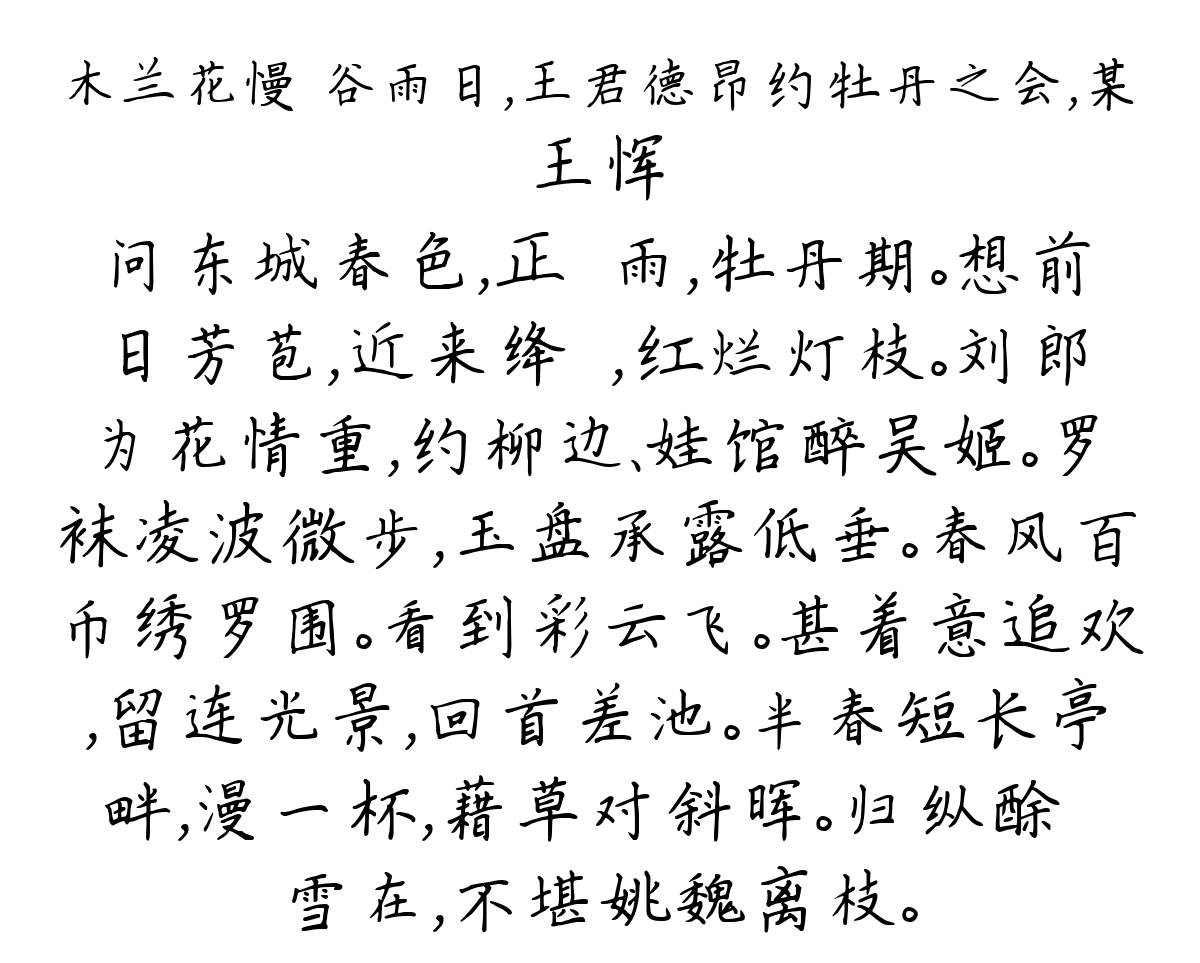 木兰花慢 谷雨日,王君德昂约牡丹之会,某
王恽
问东城春色,正 雨,牡丹期。想前
日芳苞,近来绛 ,红烂灯枝。刘郎
为花情重,约柳边、娃馆醉吴姬。罗
袜凌波微步,玉盘承露低垂。春风百
币绣罗围。看到彩云飞。甚着意追欢
,留连光景,回首差池。半春短长亭
畔,漫一杯,藉草对斜晖。归纵酴
雪在,不堪姚魏离枝。